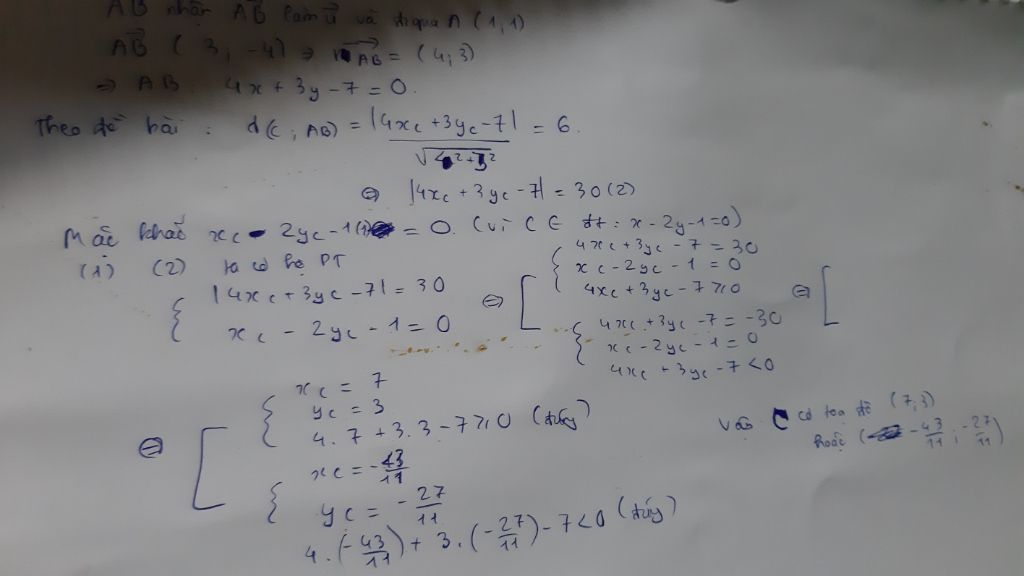 AB nhận AB làm u và đi qua A (1,1)
AB (3; -4) ⇒ n AB = (4;3)
⇒ AB: 4x + 3y - 7 = 0.
Theo đề bài : d(C; AB) = |4xc + 3yc - 7| / √(4² + 3²) = 6.
⇔ |4xc + 3yc - 7| = 30 (2)
Mặc khác xc - 2yc - 1 (1) = 0. (vì C ∈ đt: x - 2y - 1 = 0)
(1) (2) ta có hệ PT
{ |4xc + 3yc - 7| = 30
xc - 2yc - 1 = 0
⇔ [ { 4xc + 3yc - 7 = 30
xc - 2yc - 1 = 0
4xc + 3yc - 7 ≥ 0
{ 4xc + 3yc - 7 = -30
xc - 2yc - 1 = 0
4xc + 3yc - 7 < 0
⇔ [
⇔ [ { xc = 7
yc = 3
4.7 + 3.3 - 7 ≥ 0 (đúng)
{ xc = -43/11
yc = -27/11
4.(-43/11) + 3.(-27/11) - 7 < 0 (đúng)
Vậy C có tọa độ (7;3)
hoặc (-43/11; -27/11)